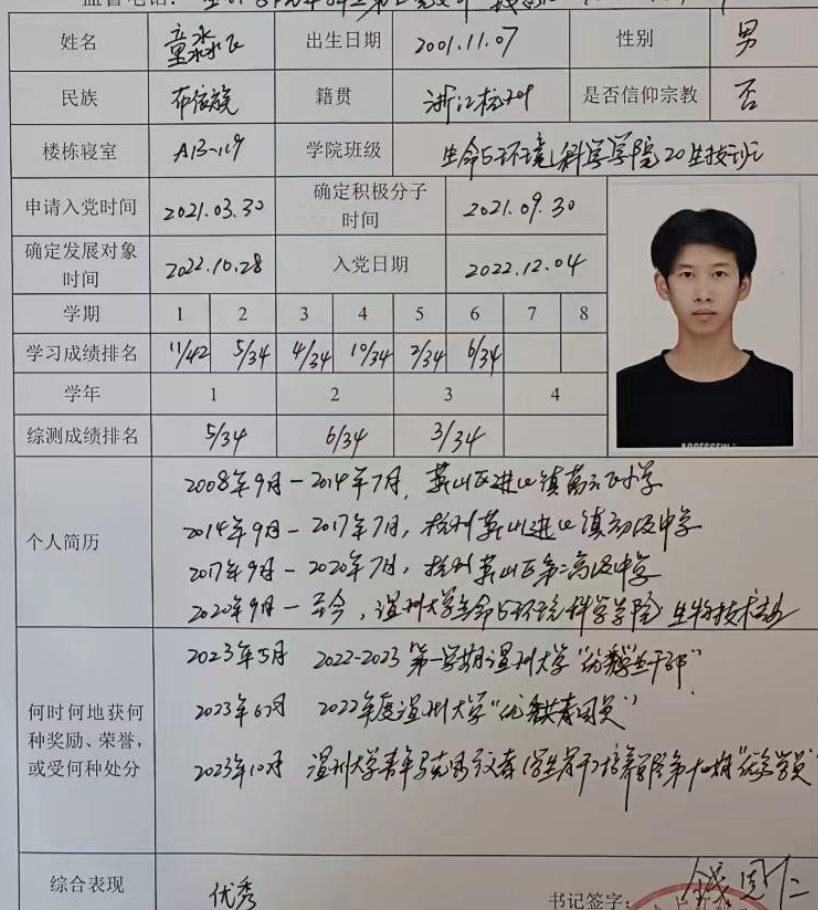 监督电话：
姓名 童淼飞 出生日期 2001.11.07 性别 男
民族 布依族 籍贯 浙江杭州 是否信仰宗教 否
楼栋寝室 A13-119 学院班级 生命与环境科学学院20生技一班
申请入党时间 2021.03.30 确定积极分子时间 2021.09.30
确定发展对象时间 2022.10.28 入党日期 2022.12.04
学期 1 2 3 4 5 6 7 8
学习成绩排名 11/42 5/34 4/34 10/34 2/34 6/34
学年 1 2 3 4
综测成绩排名 5/34 6/34 3/34
个人简历
2008年9月-2014年7月，萧山区进化镇小学
2014年9月-2017年7月，杭州萧山进化镇初级中学
2017年9月-2020年7月，杭州萧山区第二高级中学
2020年9月-至今，温州大学生命与环境科学学院生物技术专业
何时何地获何种奖励、荣誉，或受何种处分
2023年5月 2022-2023第一学期温州大学“优秀学生干部”
2023年6月 2022年度温州大学“优秀共青团员”
2023年10月 温州大学青年马克思主义者(学生骨干)培养学院第十期“优秀学员”
综合表现 优秀 书记签字：